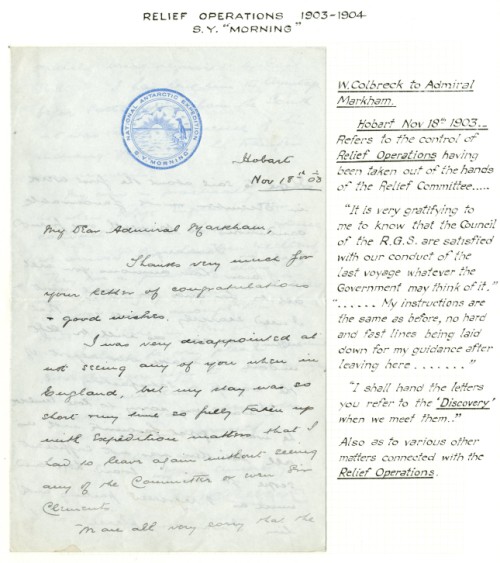 RELIEF OPERATIONS 1903-1904
S.Y. "MORNING"
NATIONAL ANTARCTIC EXPEDITION
S.Y. MORNING
Hobart
Nov 18th 03
My Dear Admiral Markham,
Thanks very much for
your letter of congratulations
& good wishes
I was very disappointed at
not seeing any of you when in
England, but my stay was so
short & my time so fully taken up
with Expedition matters that I
had to leave again without seeing
any of the Committee or even Sir
Clements
We are all very sorry that the
W. Colbreck to Admiral
Markham.
Hobart Nov 18th 1903...
Refers to the control of
Relief Operations having
been taken out of the hands
of the Relief Committee.....
"It is very gratifying to
me to know that the Council
of the R.G.S. are satisfied
with our conduct of the
last voyage whatever the
Government may think of it."
"...... My instructions are
the same as before, no hard
and fast lines being laid
down for my guidance after
leaving here ......."
"I shall hand the letters
you refer to the 'Discovery'
when we meet them.."
Also as to various other
matters connected with the
Relief Operations.